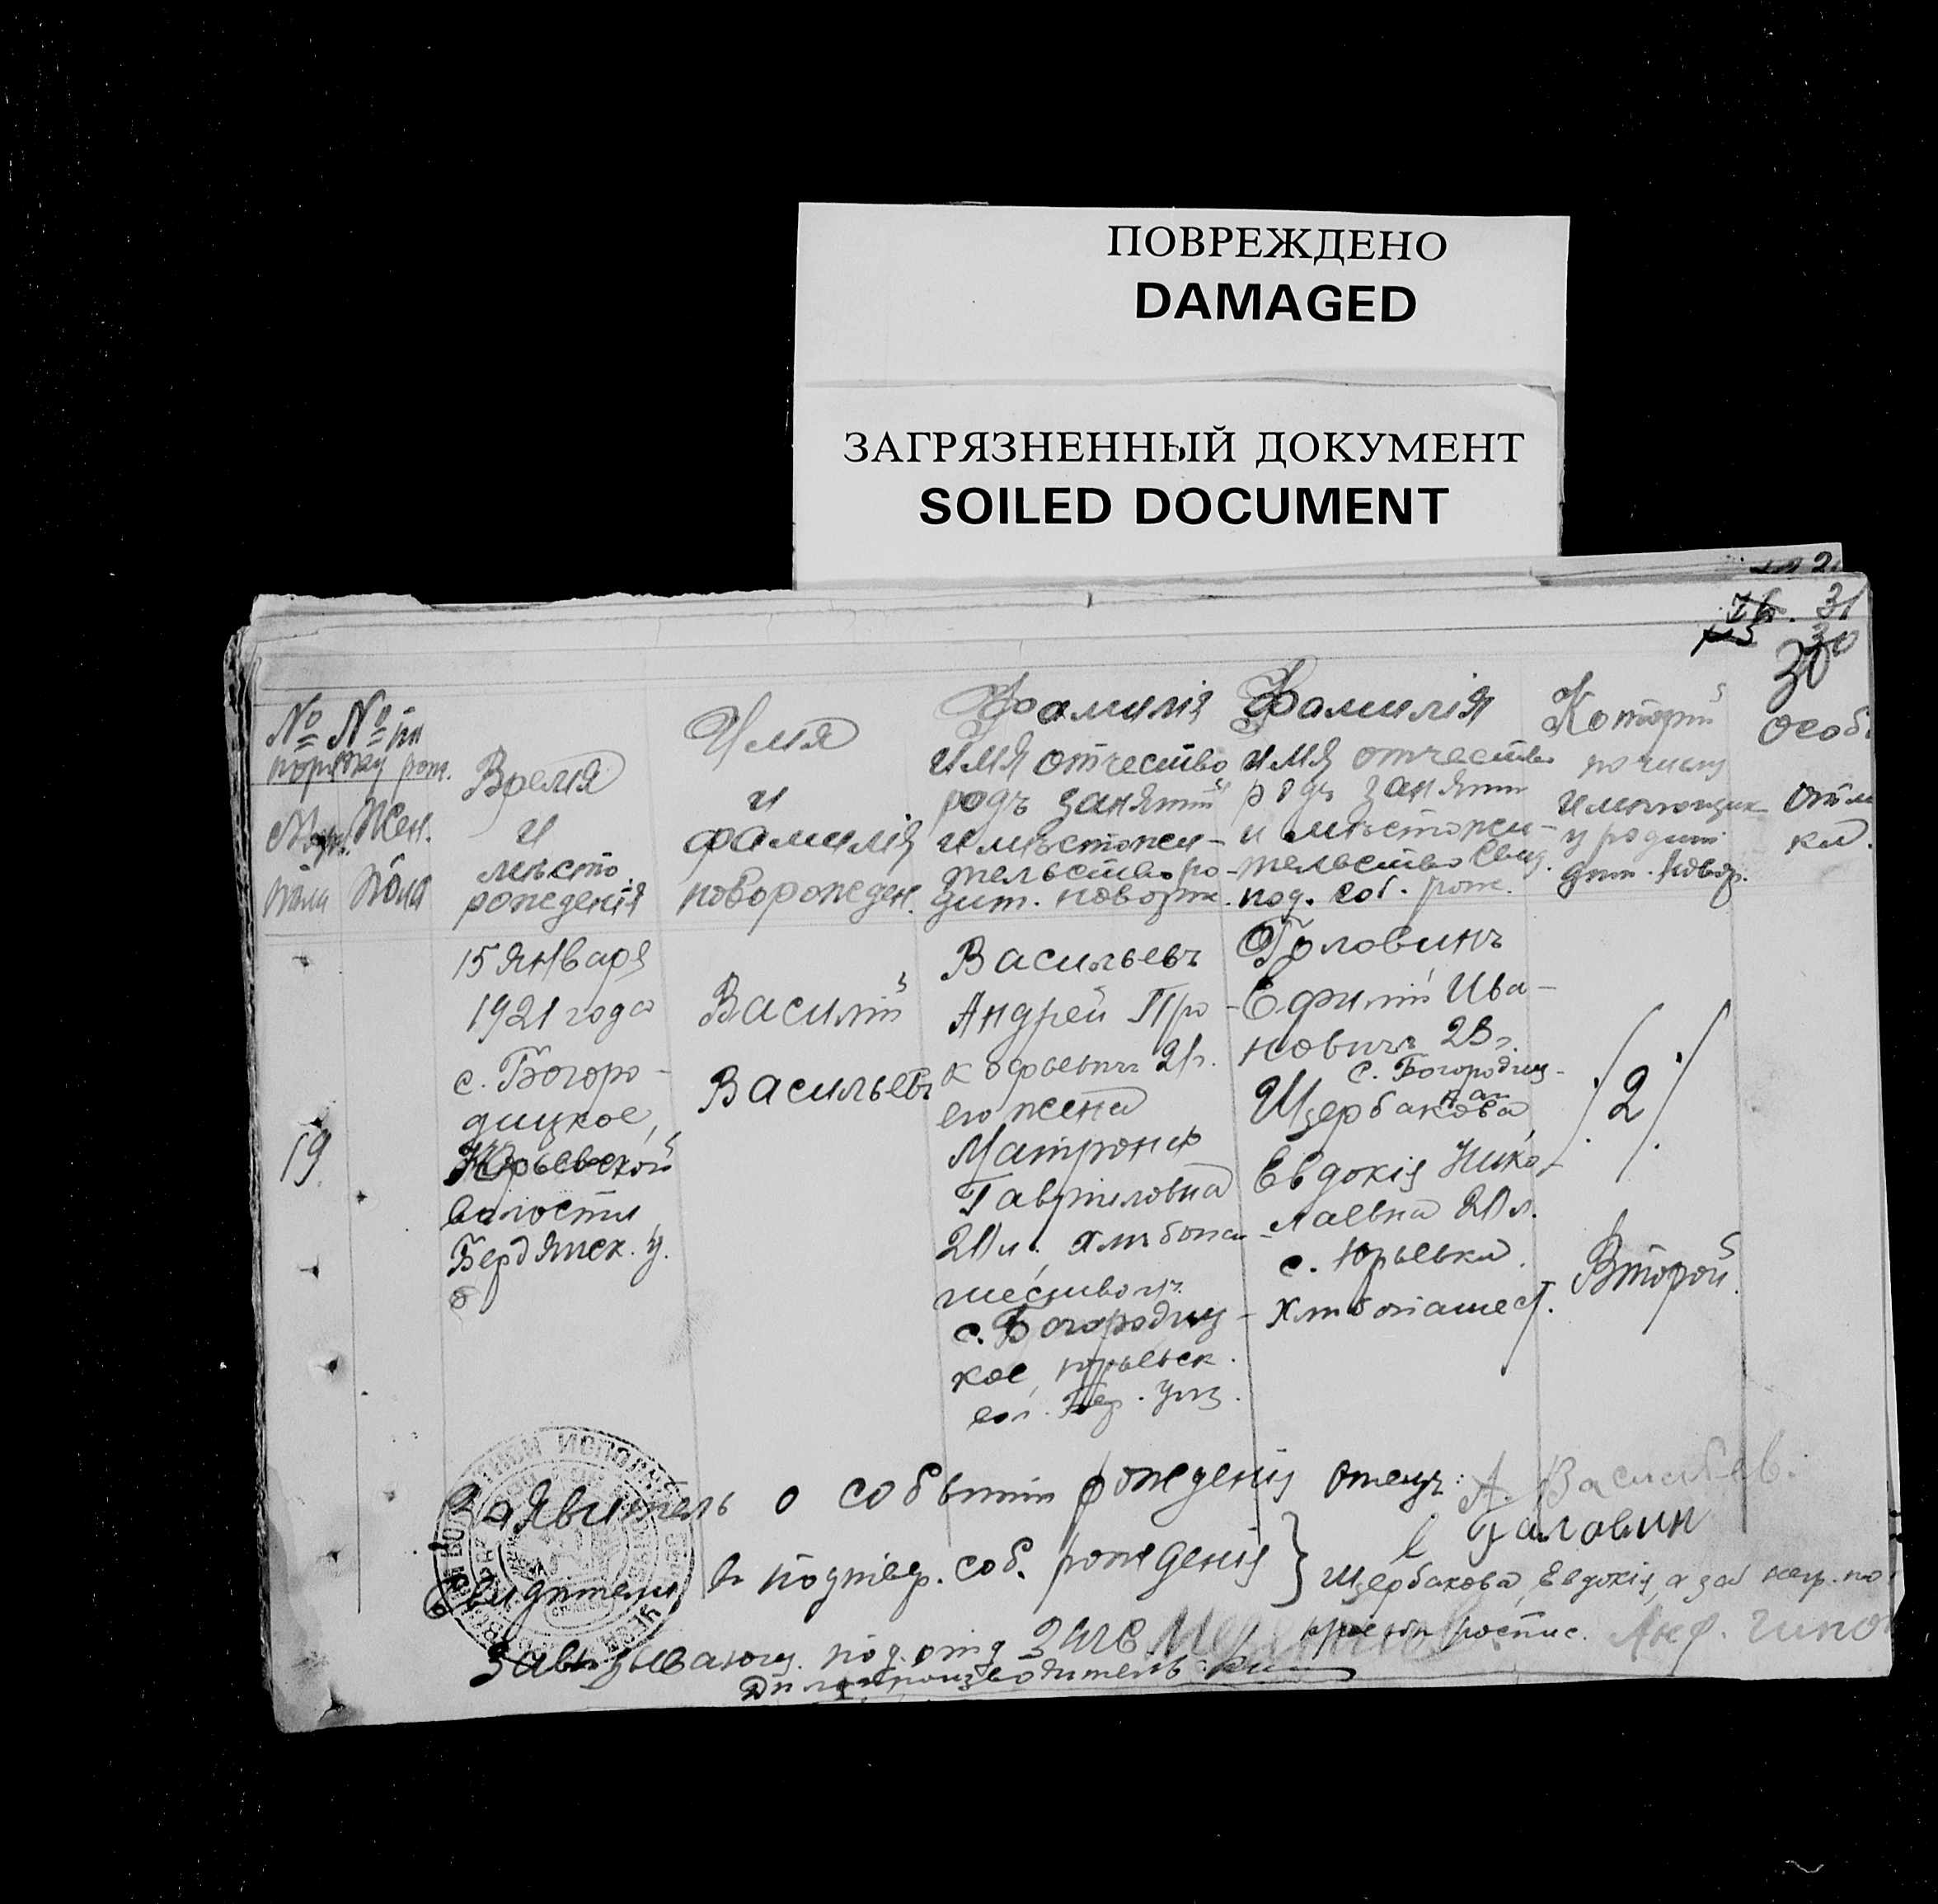 ПОВРЕЖДЕНО
DAMAGED
ЗАГРЯЗНЕННЫЙ ДОКУМЕНТ
SOILED DOCUMENT
31
30
30
№ № по
порядку рож.
Муж. Жен.
пола пола
Время
и
мѣсто
рожденія
Имя
и
фамилія
новорожден.
Фамилія
имя отчество
родъ занятій
и мѣстожи-
тельство ро-
дит. новорж.
Фамилія
имя отчество
родъ занятій
и мѣстожи-
тельство свид.
под. соб. рож.
Который
по числу
у родит
дит. новор.
особ.
отм
ки.
19
15 Января
1921 года
с. Богоро-
дицкое,
Юрьевской
волости
Бердянск. у.
Василій
Васильевъ
Васильевъ
Андрей Про-
кофьевичъ 21г.
его жена
Матрона
Гавриловна
20 л. хлѣбопа-
шество
с. Богородиц-
кое, юрьевск.
вол. Бер. уѣз.
Головинъ
Ефимій Ива-
новичъ 23г.
с. Богородиц-
кая
Щербакова
Евдокія Нико-
лаевна 20 л.
с. Юрьевка.
Хлѣбопашест.
2
Второй
Заявитель о событіи рожденія отецъ: А. Васильев.
Свидѣтели въ подтвер. соб. рожденія } Галовин
Щербакова, Евдокія, а за неё негр. по
просьбѣ роспис.
Завѣдывающ. под. отд ЗАГС
Дѣлопроизводитель: